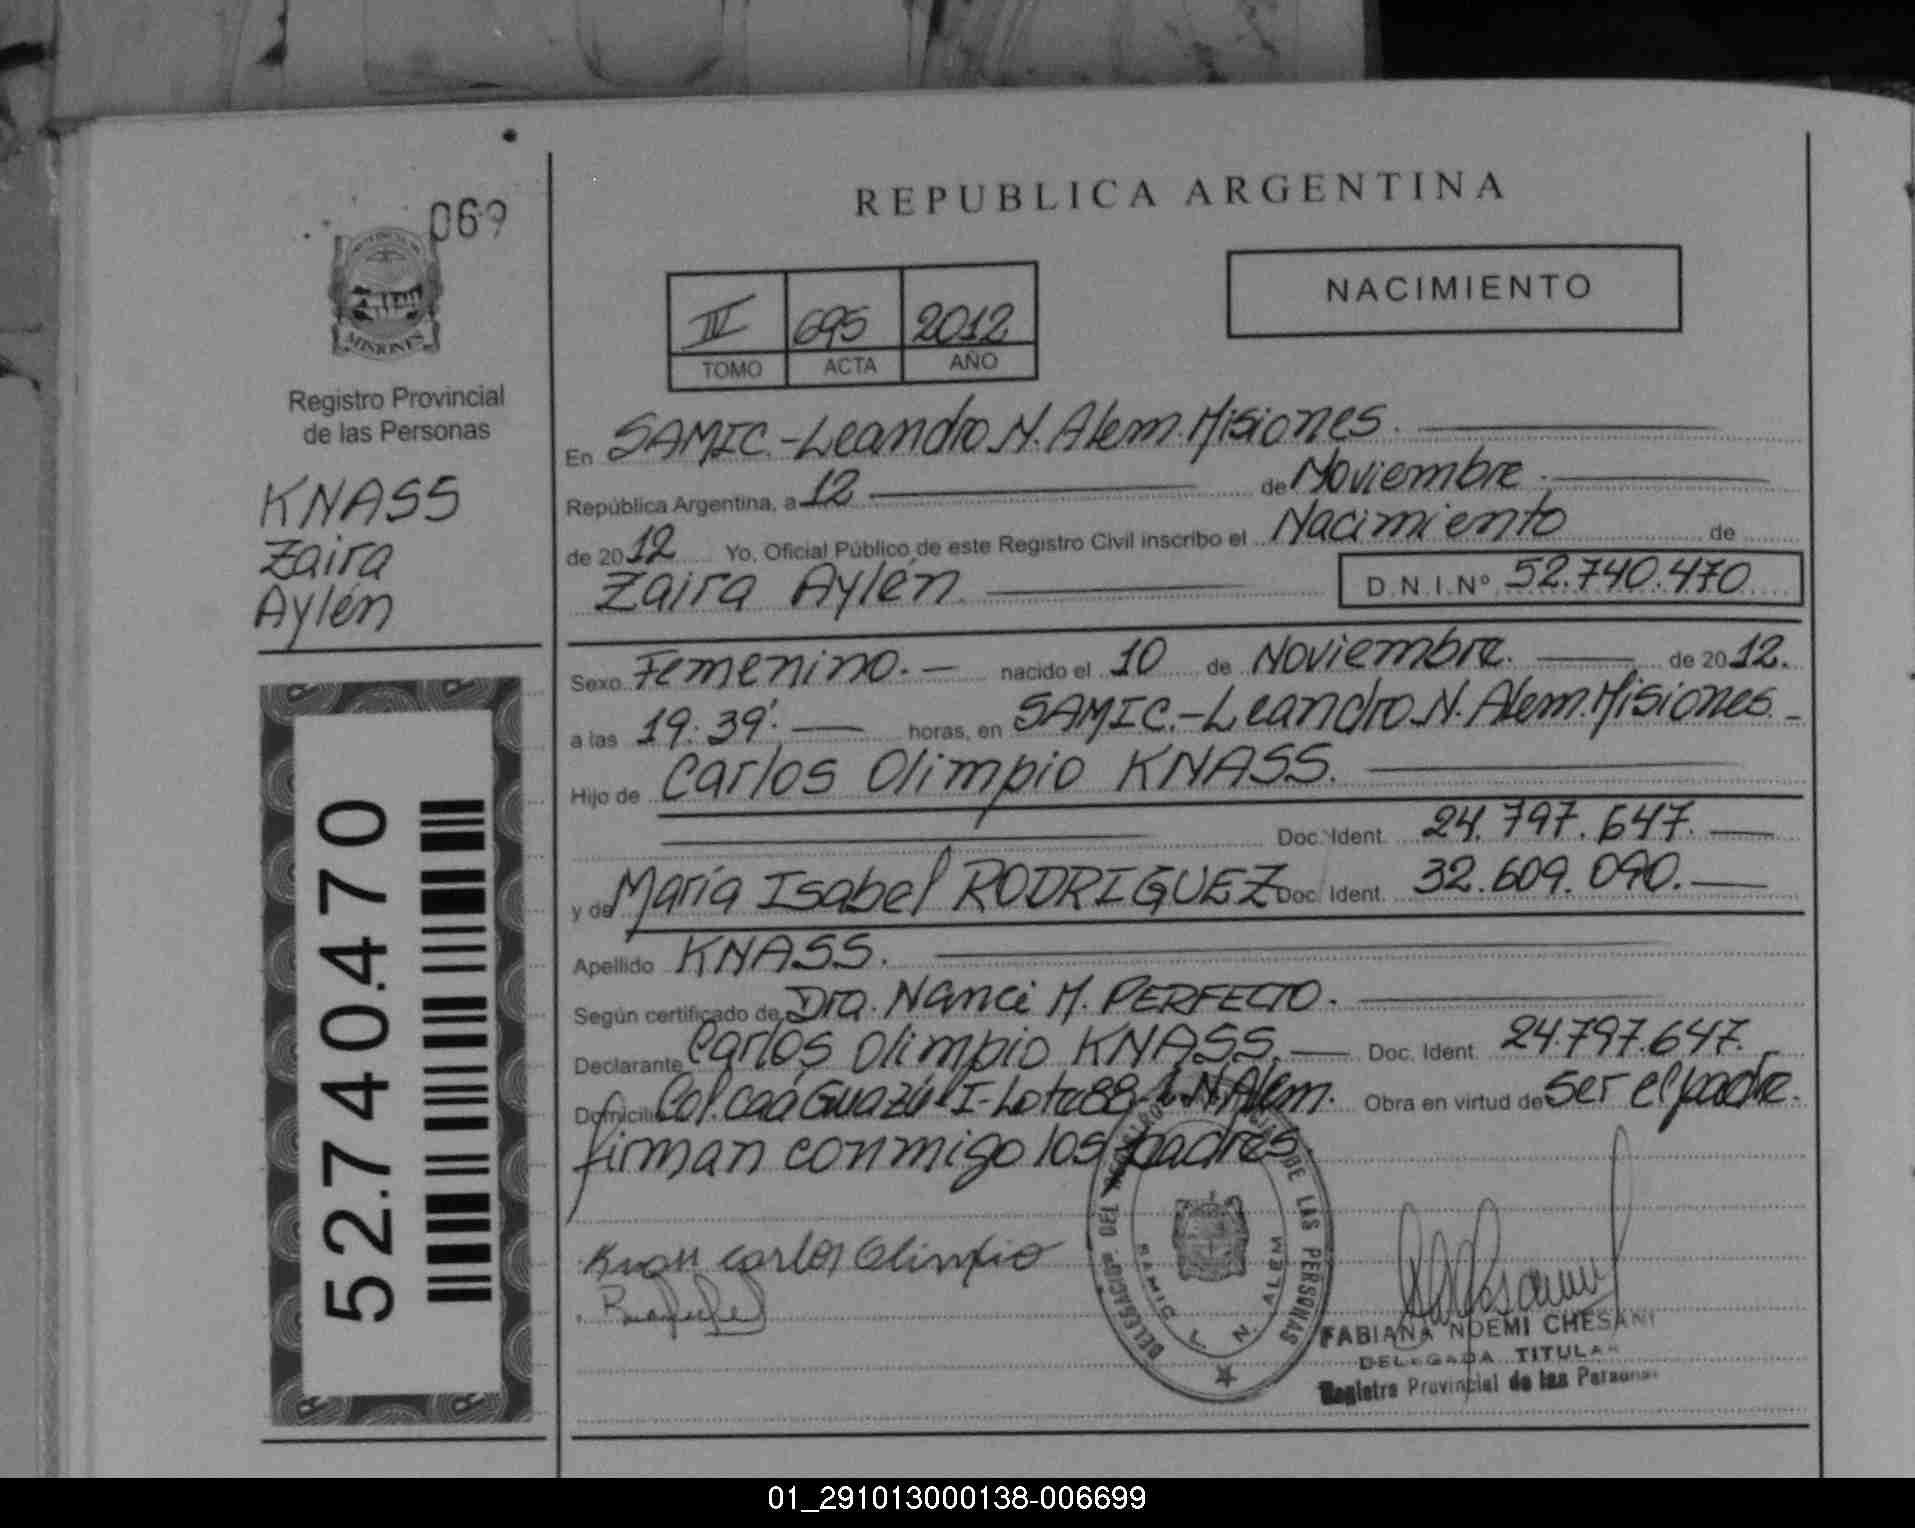 069
PROVINCIA DE
MISIONES
Registro Provincial
de las Personas
KNASS
Zaira
Aylén
52.740.470
REPUBLICA ARGENTINA
NACIMIENTO
IV 695 2012
TOMO ACTA AÑO
En SAMIC.-Leandro N. Alem. Misiones.
República Argentina, a 12 de Noviembre.
de 2012 Yo, Oficial Público de este Registro Civil inscribo el Nacimiento de
Zaira Aylén. D.N.I.Nº 52.740.470
Sexo Femenino.- nacido el 10 de Noviembre. de 2012.
a las 19:39'. horas, en SAMIC.-Leandro N. Alem. Misiones.-
Hijo de Carlos Olimpio KNASS.
Doc. Ident. 24.797.647.
y de María Isabel RODRIGUEZ Doc. Ident. 32.609.090.
Apellido KNASS.
Según certificado de Dra. Nanci M. PERFECTO.
Declarante Carlos Olimpio KNASS. Doc. Ident. 24.797.647.
Domicilio Col. Caá Guazú-I-Lote 88-L.N. Alem. Obra en virtud de ser el padre.
firman conmigo los padres.
Carlos Olimpio
DELEGACION DEL REGISTRO PROVINCIAL DE LAS PERSONAS
SAMIC L. N. ALEM
FABIANA NOEMI CHESANI
DELEGADA TITULAR
Registro Provincial de las Personas
01_291013000138-006699